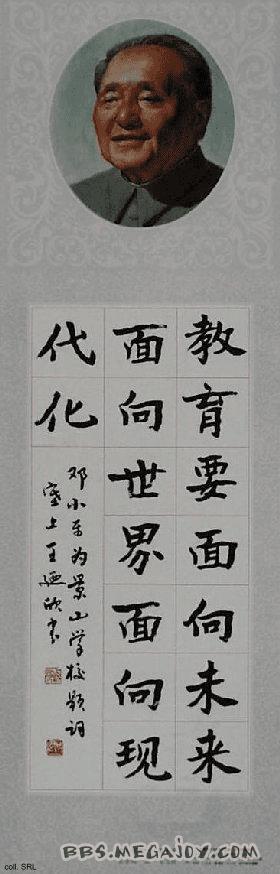 教育要面向未来
面向世界面向现
代化
邓小平为景山学校题词
塞上王 书
BBS.MEGAJOY.COM
coll. SRL